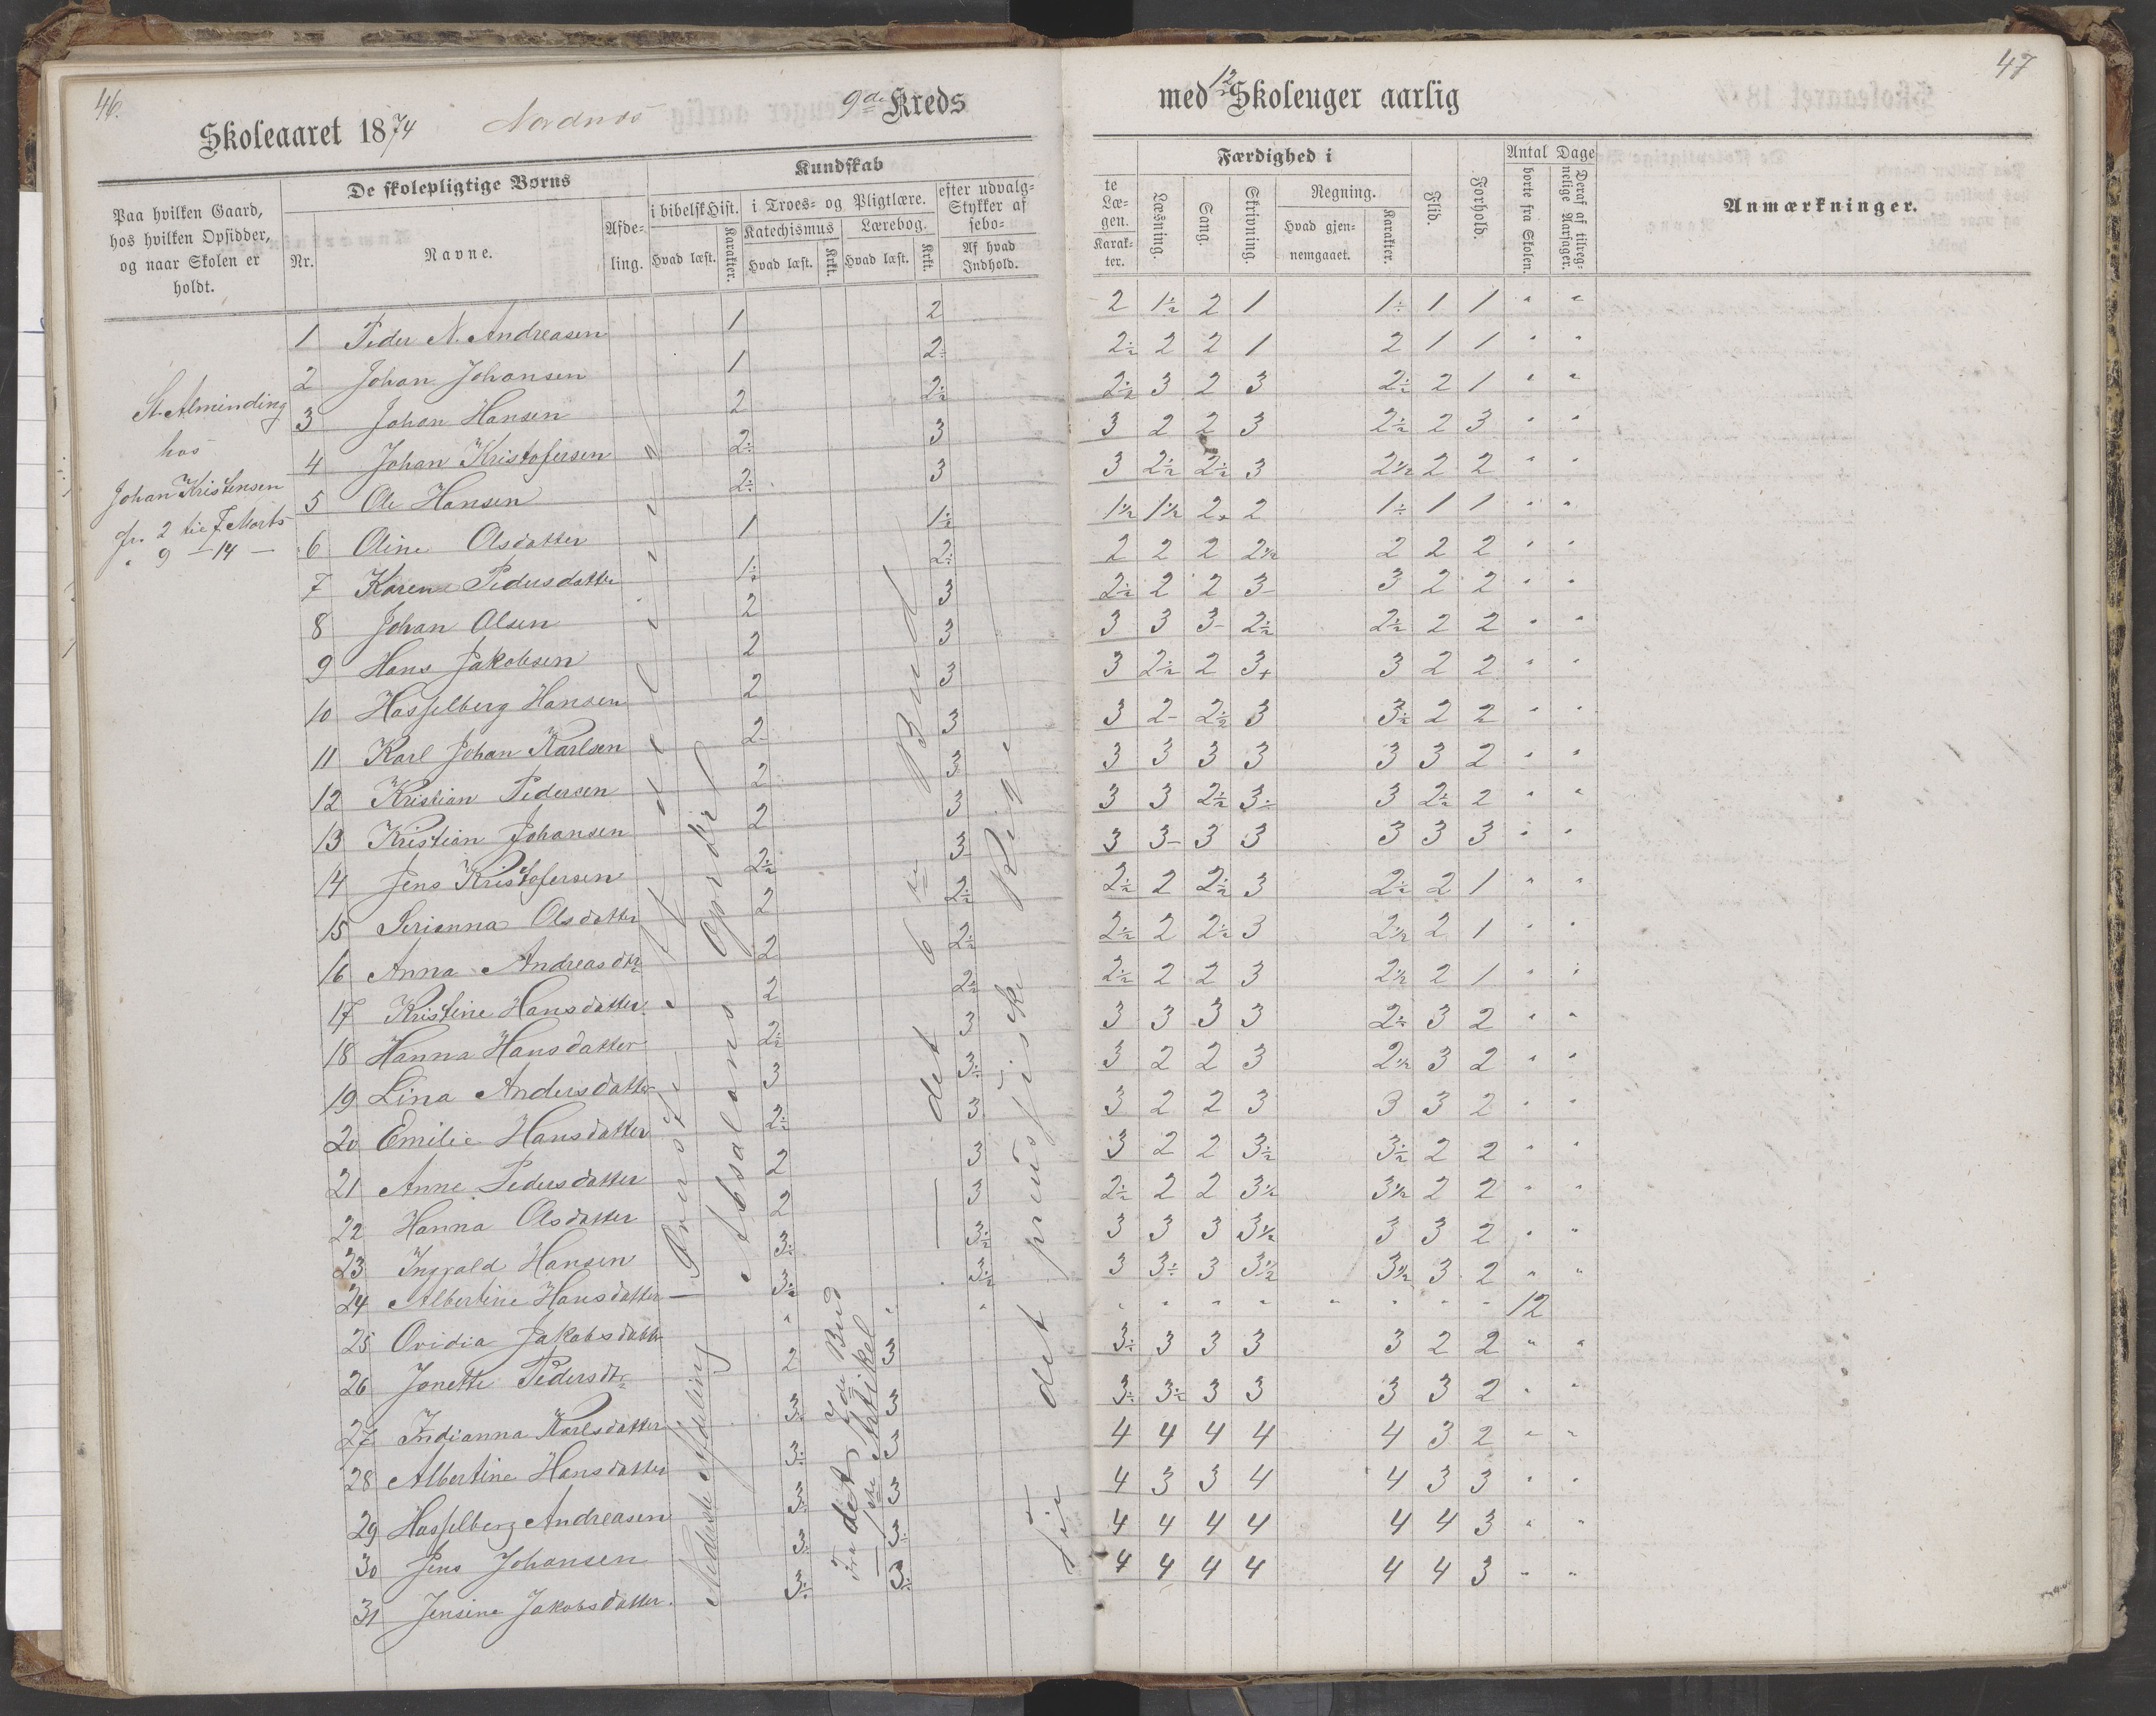 46.
Skoleaaret 1874 Nordnæs 9de Kreds
Paa hvilken Gaard, hos hvilken Opsidder, og naar Skolen er holdt.
De skolepligtige Børns
Nr. Navne. Afdeling.
Kundskab
i bibelsk Hist. i Troes- og Pligtlære. efter udvalg-
Stykker af
sebo-
Hvad læst. Karakter. Katechismus Hvad læst. Krkt. Lærebog. Hvad læst. Krkt. Af hvad Indhold.
St. Alminding
hos
Johan Kristensen
fr. 2 til 7 Marts
" 9 — 14 —
1 Peder N. Andreasen 1 2
2 Johan Johansen 1 2÷
3 Johan Hansen 2 2½
4 Johan Kristofersen 2÷ 3
5 Ole Hansen 2÷ 3
6 Oline Olsdatter 1 1½
7 Karen Pedersdatter 1½ 2÷
8 Johan Olsen 2 3
9 Hans Jakobsen 2 3
10 Hasselberg Hansen 2 3
11 Karl Johan Karlsen 2 3
12 Kristian Pedersen 2 3
13 Kristian Johansen 2 3
14 Jens Kristofersen 2½ 3
15 Serianna Olsdatter 2 2½
16 Anna Andreasdtr 2 2½
17 Kristine Hansdatter 2 2½
18 Hanna Hansdatter 2½ 3
19 Lina Andersdatter 3 3÷
20 Emilie Hansdatter 2÷ 3
21 Anne Pedersdatter 2 3
22 Hanna Olsdatter 2 3
23 Ingvald Hansen 3÷ 3½
24 Albertine Hansdatter 3½ 3½
25 Ovidia Jakobsdatter " " "
26 Jonette Pedersdtr 2 3
27 Indianna Karlsdatter 3÷ 3
28 Albertine Hansdatter 3÷ 3
29 Hasselberg Andreasen 3÷ 3
30 Jens Johansen 3÷ 3÷
31 Jensine Jakobsdatter. 3÷ 3÷
Øverste Afdeling
Absalons Oprør
det 6te Bud
Nederste Afdeling
Fra det 7de Bud
1ste Artikel
det preussiske Rige
47
med 12 Skoleuger aarlig
te Læ-
gen.
Karak-
ter.
Færdighed i
Læsning. Sang. Skrivning. Regning. Hvad gjen-
nemgaaet. Karakter. Flid. Forhold.
Antal Dage
borte fra Skolen. Deraf af tilreg-
nelige Aarsager.
Anmærkninger.
2 1½ 2 1 1÷ 1 1 " "
2½ 2 2 1 2 1 1 " "
2½ 3 2 3 2½ 2 1 " "
3 2 2 3 2½ 2 3 " "
3 2½ 2½ 3 2½ 2 2 " "
1½ 1½ 2+ 2 1÷ 1 1 " "
2 2 2 2½ 2 2 2 " "
2½ 2 2 3- 3 2 2 " "
3 3 3- 2½ 2½ 2 2 " "
3 2½ 2 3+ 3 2 2 " "
3 2- 2½ 3 3½ 2 2 " "
3 3 3 3 3 3 2 " "
3 3 2½ 3÷ 3 2½ 2 " "
3 3- 3 3 3 3 3 " "
2½ 2 2½ 3 2½ 2 1 " "
2½ 2 2½ 3 2½ 2 1 " "
2½ 2 2 3 2½ 2 1 " "
3 3 3 3 2÷ 3 2 " "
3 2 2 3 2½ 3 2 " "
3 2 2 3 3 3 2 " "
3 2 2 3½ 3½ 2 2 " "
2½ 2 2 3½ 3½ 2 2 " "
3 3 3 3½ 3 3 2 " "
3 3÷ 3 3½ 3½ 3 2 " "
" " " " " " " " 12
3÷ 3 3 3 3 2 2 " "
3÷ 3½ 3 3 3 3 2 " "
4 4 4 4 4 3 2 " "
4 3 3 4 4 3 3 " "
4 4 4 4 4 4 3 " "
4 4 4 4 4 4 3 " "